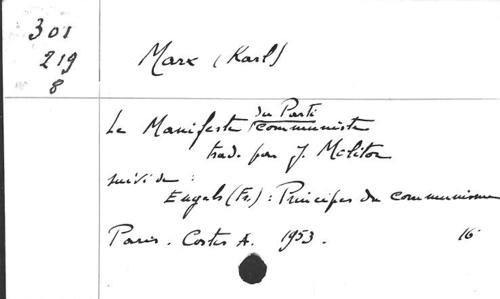 301
219
8
Marx (Karl)
Le Manifeste du Parti communiste
trad. par J. Molitor
suivi de :
Engels (Fr.) : Principes du communisme
Paris. Costes A. 1953. 16